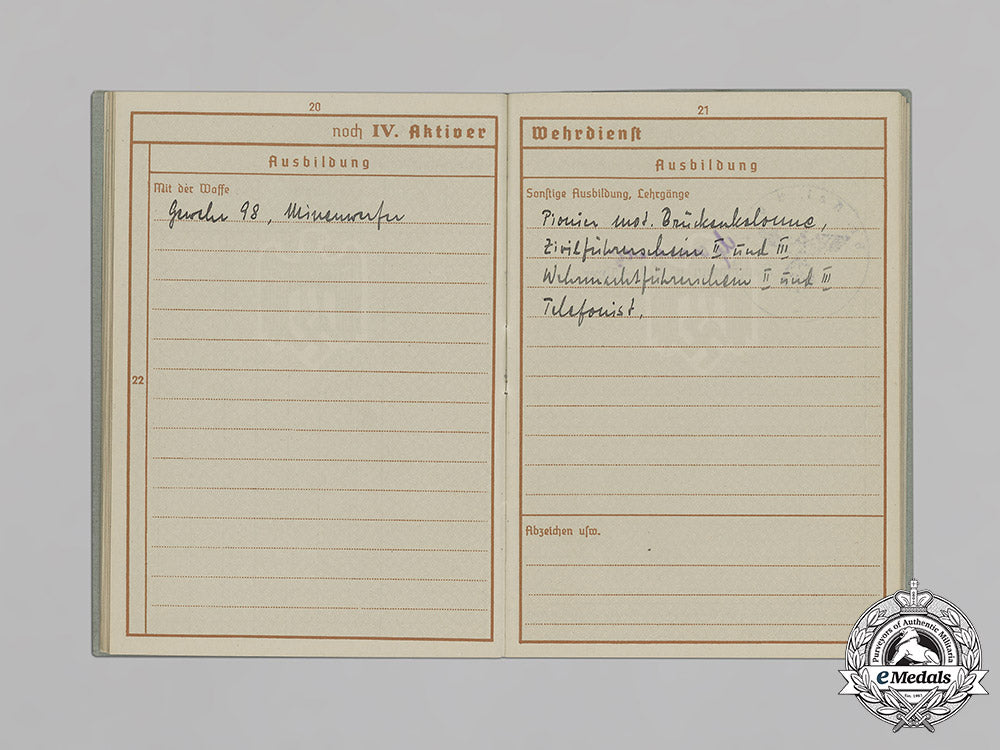 20
noch IV. Aktiver
Ausbildung
Mit der Waffe
Gewehr 98, Minenwerfer
22
21
Wehrdienst
Ausbildung
Sonstige Ausbildung, Lehrgänge
Pionier mot. Brückenkolonne,
Zivilführerschein II und III
Wehrmachtführerschein II und III
Telefonist,
Abzeichen usw.
Purveyors of Authentic Militaria
eMedals